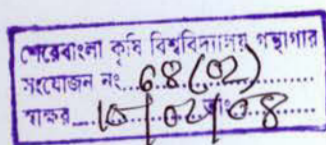 শেরেবাংলা কৃষি বিশ্ববিদ্যালয় গন্থাগার
সংযোজন নং...68(02)...........
স্বাক্ষর